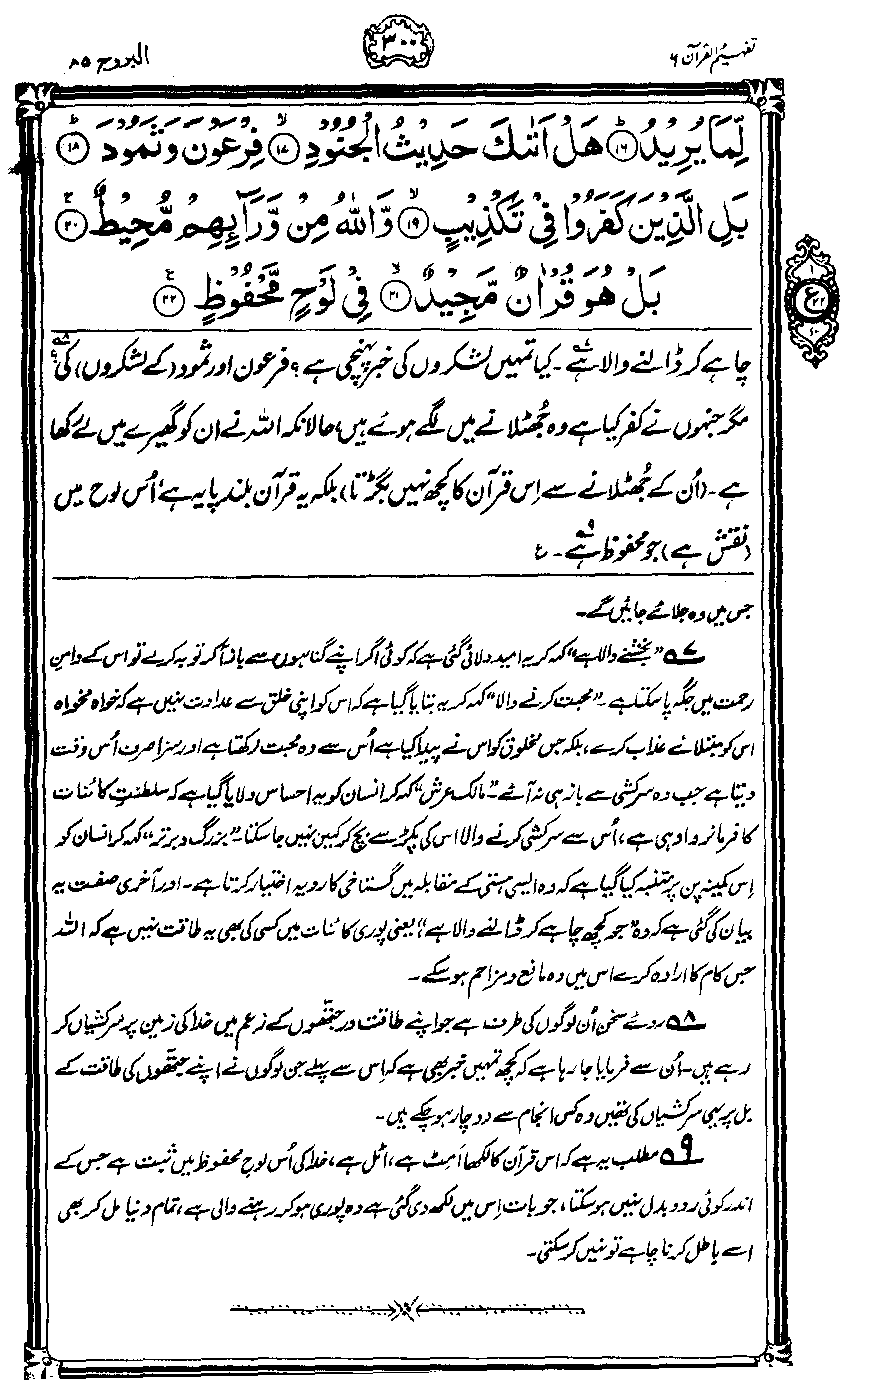 تفہیم القرآن ۶
۳۰۰
البروج ۸۵
لِّمَا يُرِيْدُ ؕ﴿۱۶﴾ هَلْ اَتٰىكَ حَدِيْثُ الْجُنُوْدِ ۙ﴿۱۷﴾ فِرْعَوْنَ وَثَمُوْدَ ؕ﴿۱۸﴾
بَلِ الَّذِيْنَ كَفَرُوْا فِيْ تَكْذِيْبٍ ۙ﴿۱۹﴾ وَّاللّٰهُ مِنْ وَّرَآىِٕهِمْ مُّحِيْطٌ ۚ﴿۲۰﴾
بَلْ هُوَ قُرْاٰنٌ مَّجِيْدٌ ۙ﴿۲۱﴾ فِيْ لَوْحٍ مَّحْفُوْظٍ ﴿۲۲﴾
۱
ع ۲۲
۱۰
چاہے کر ڈالنے والا ہے۔ کیا تمہیں لشکروں کی خبر پہنچی ہے؟ فرعون اور ثمود (کے لشکروں) کی؟
مگر جنہوں نے کفر کیا ہے وہ جُھٹلانے میں لگے ہوئے ہیں، حالانکہ اللہ نے ان کو گھیرے میں لے رکھا
ہے۔ (اُن کے جُھٹلانے سے اِس قرآن کا کچھ نہیں بگڑتا) بلکہ یہ قرآن بلند پایہ ہے، اُس لوح میں
(نقش ہے) جو محفوظ ہے۔ ۵۹ ع
جس میں وہ جلائے جائیں گے۔
۵۷ ”بخشنے والا ہے“ کہہ کر یہ امید دلائی گئی ہے کہ کوئی اگر اپنے گناہوں سے باز آ کر توبہ کرے تو اس کے دامنِ
رحمت میں جگہ پا سکتا ہے۔ ”محبت کرنے والا“ کہہ کر یہ بتایا گیا ہے کہ اس کو اپنی خلق سے عداوت نہیں ہے کہ خواہ مخواہ
اس کو مبتلائے عذاب کرے، بلکہ جس مخلوق کو اس نے پیدا کیا ہے اُس سے وہ محبت رکھتا ہے اور سزا صرف اُس وقت
دیتا ہے جب وہ سرکشی سے باز ہی نہ آئے۔ ”مالک عرش“ کہہ کر انسان کو یہ احساس دلایا گیا ہے کہ سلطنتِ کائنات
کا فرمانروا وہی ہے، اُس سے سرکشی کرنے والا اس کی پکڑ سے بچ کر کہیں نہیں جا سکتا۔ ”بزرگ و برتر“ کہہ کر انسان کو
اِس کمینہ پن پر متنبہ کیا گیا ہے کہ وہ ایسی ہستی کے مقابلہ میں گستاخی کا رویہ اختیار کرتا ہے۔ اور آخری صفت یہ
بیان کی گئی ہے کہ وہ ”جو کچھ چاہے کر ڈالنے والا ہے“، یعنی پوری کائنات میں کسی کی بھی یہ طاقت نہیں ہے کہ اللہ
جس کام کا ارادہ کرے اس میں وہ مانع و مزاحم ہو سکے۔
۵۸ روئے سخن اُن لوگوں کی طرف ہے جو اپنے طاقت ور جتھوں کے زعم میں خدا کی زمین پر سرکشیاں کر
رہے ہیں۔ اُن سے فرمایا جا رہا ہے کہ کچھ تمہیں خبر بھی ہے کہ اِس سے پہلے جن لوگوں نے اپنے جتھوں کی طاقت کے
بل پر یہی سرکشیاں کی تھیں وہ کس انجام سے دوچار ہو چکے ہیں۔
۵۹ مطلب یہ ہے کہ اس قرآن کا لکھا اَمِٹ ہے، اٹل ہے، خدا کی اُس لوحِ محفوظ میں ثبت ہے جس کے
اندر کوئی ردوبدل نہیں ہو سکتا، جو بات اِس میں لکھ دی گئی ہے وہ پوری ہو کر رہنے والی ہے، تمام دنیا مل کر بھی
اسے باطل کرنا چاہے تو نہیں کر سکتی۔